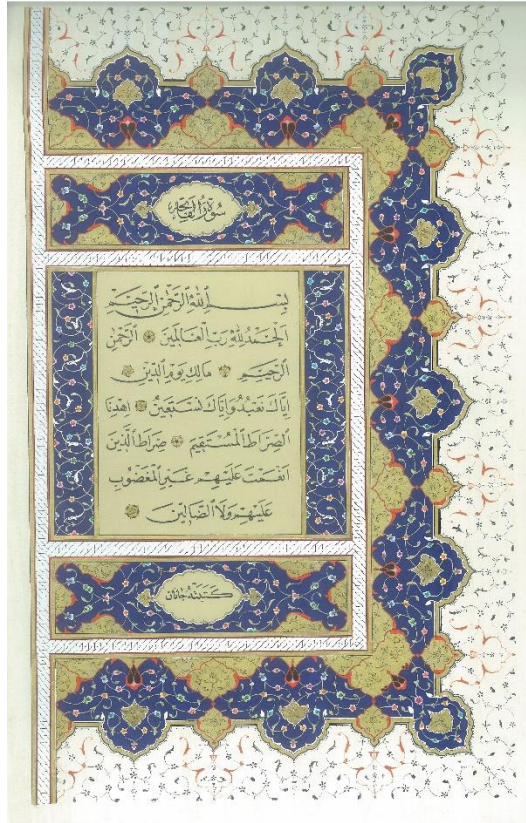 سورة الفاتحة
بسم الله الرحمن الرحيم
الحمد لله رب العالمين ۞ الرحمن
الرحيم ۞ مالك يوم الدين ۞
إياك نعبد وإياك نستعين ۞ اهدنا
الصراط المستقيم ۞ صراط الذين
أنعمت عليهم غير المغضوب
عليهم ولا الضالين ۞